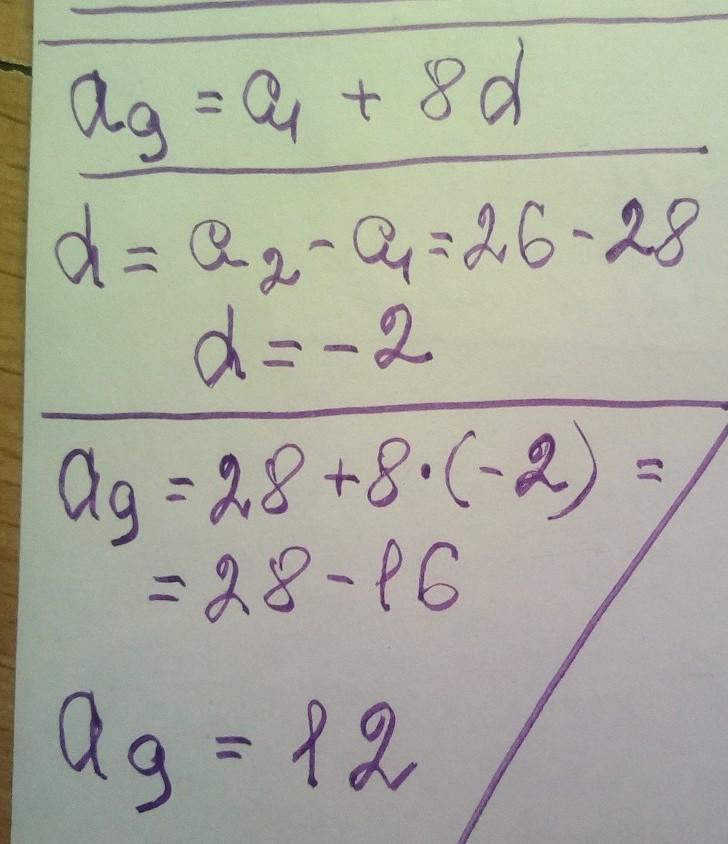 a₉ = a₁ + 8d
d = a₂ - a₁ = 26 - 28
d = -2
a₉ = 28 + 8·(-2) =
= 28 - 16
a₉ = 12